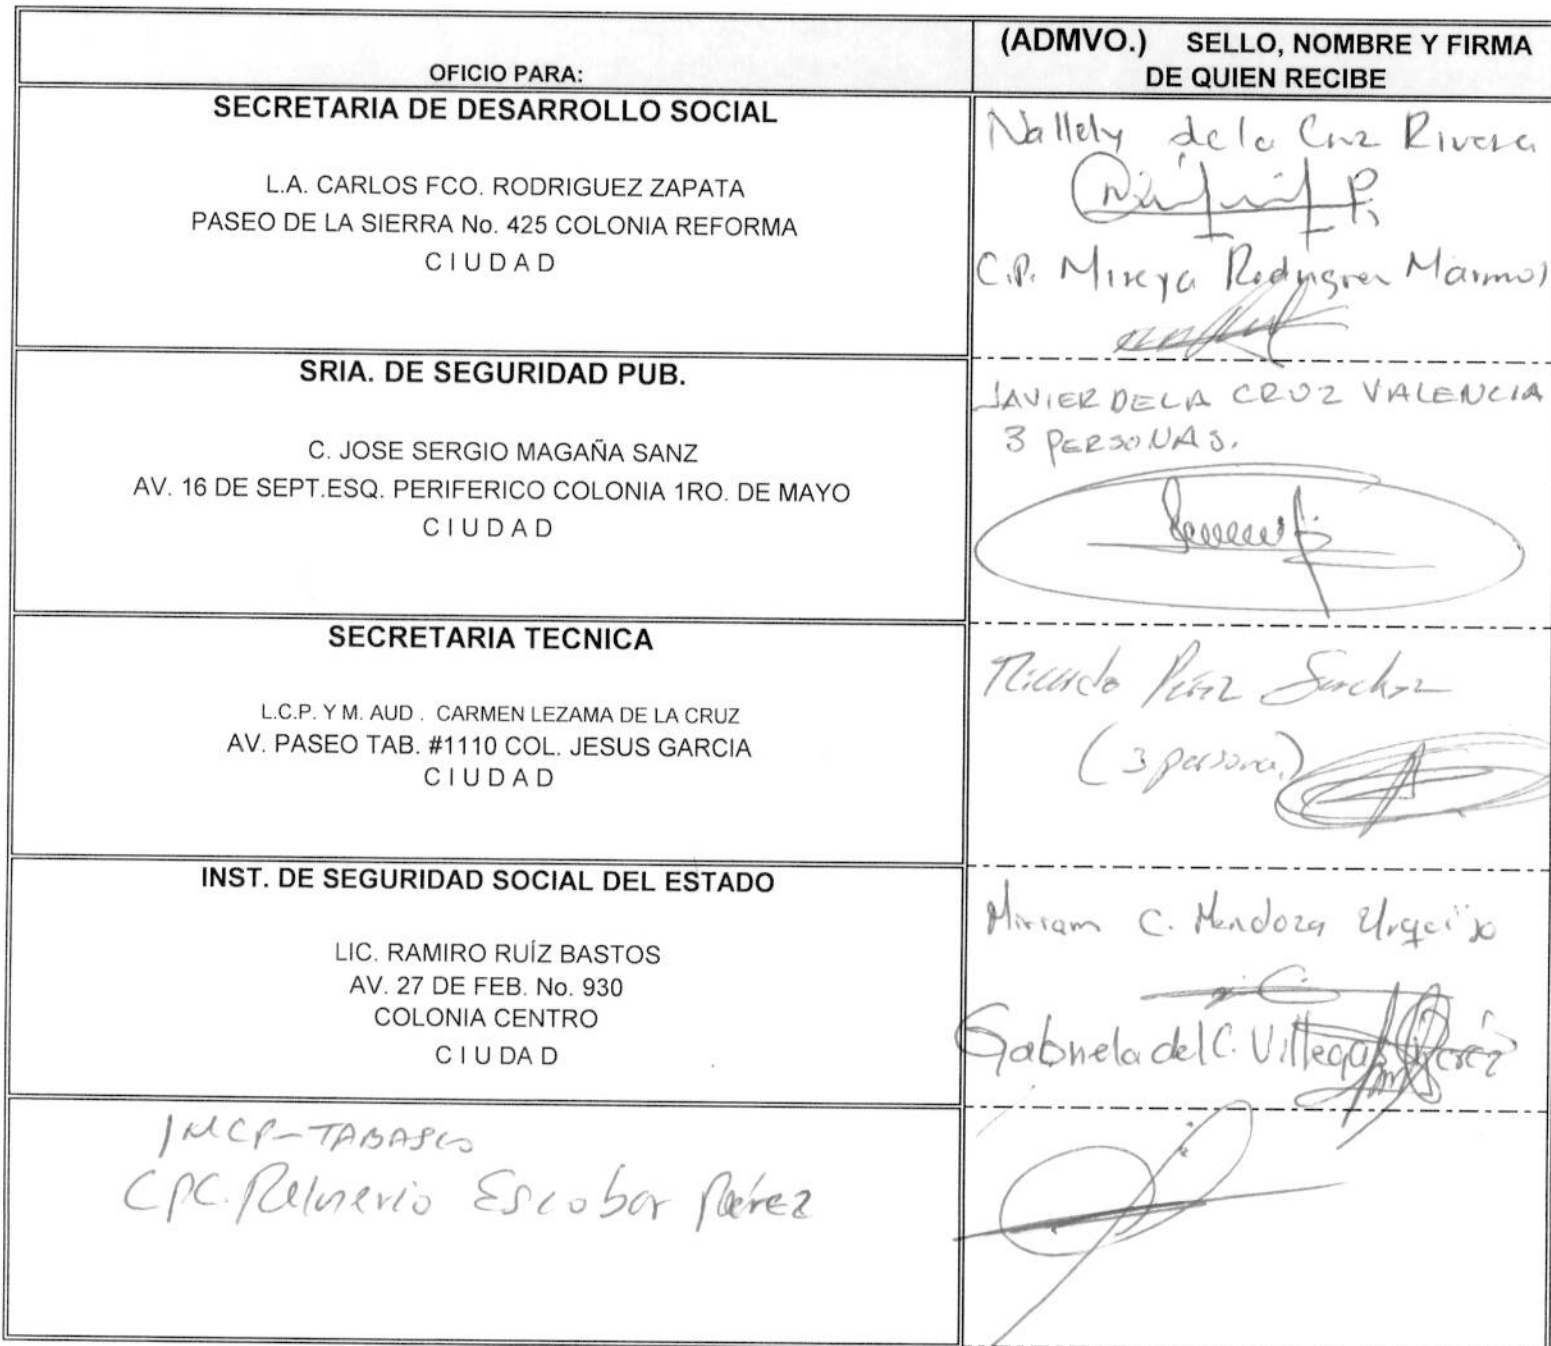 OFICIO PARA:
(ADMVO.) SELLO, NOMBRE Y FIRMA
DE QUIEN RECIBE
SECRETARIA DE DESARROLLO SOCIAL
L.A. CARLOS FCO. RODRIGUEZ ZAPATA
PASEO DE LA SIERRA No. 425 COLONIA REFORMA
C I U D A D
Nallely de la Cruz Rivera
C.P. Mireya Rodriguez Marmol
SRIA. DE SEGURIDAD PUB.
C. JOSE SERGIO MAGAÑA SANZ
AV. 16 DE SEPT.ESQ. PERIFERICO COLONIA 1RO. DE MAYO
C I U D A D
JAVIER DE LA CRUZ VALENCIA
3 PERSONAS.
SECRETARIA TECNICA
L.C.P. Y M. AUD . CARMEN LEZAMA DE LA CRUZ
AV. PASEO TAB. #1110 COL. JESUS GARCIA
C I U D A D
Ricardo Pérez Sanchez
(3 personas)
INST. DE SEGURIDAD SOCIAL DEL ESTADO
LIC. RAMIRO RUÍZ BASTOS
AV. 27 DE FEB. No. 930
COLONIA CENTRO
C I U DA D
Miriam C. Mendoza
Gabriela del C. Villegas Pérez
IMCP-TABASCO
CPC. Escobar Pérez